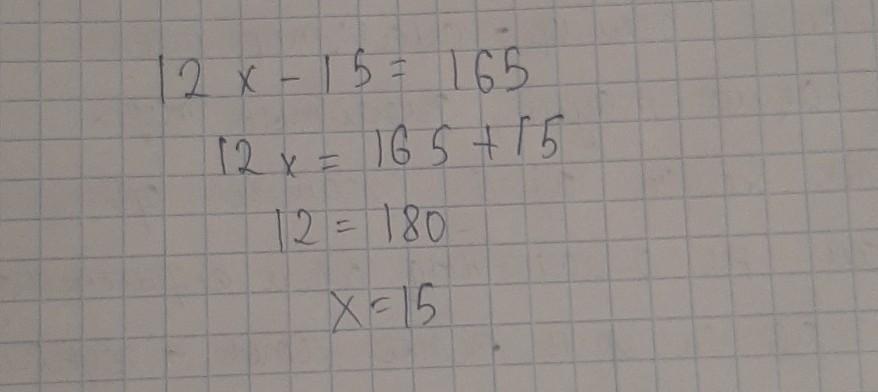 12x - 15 = 165
12x = 165 + 15
12 = 180
x = 15